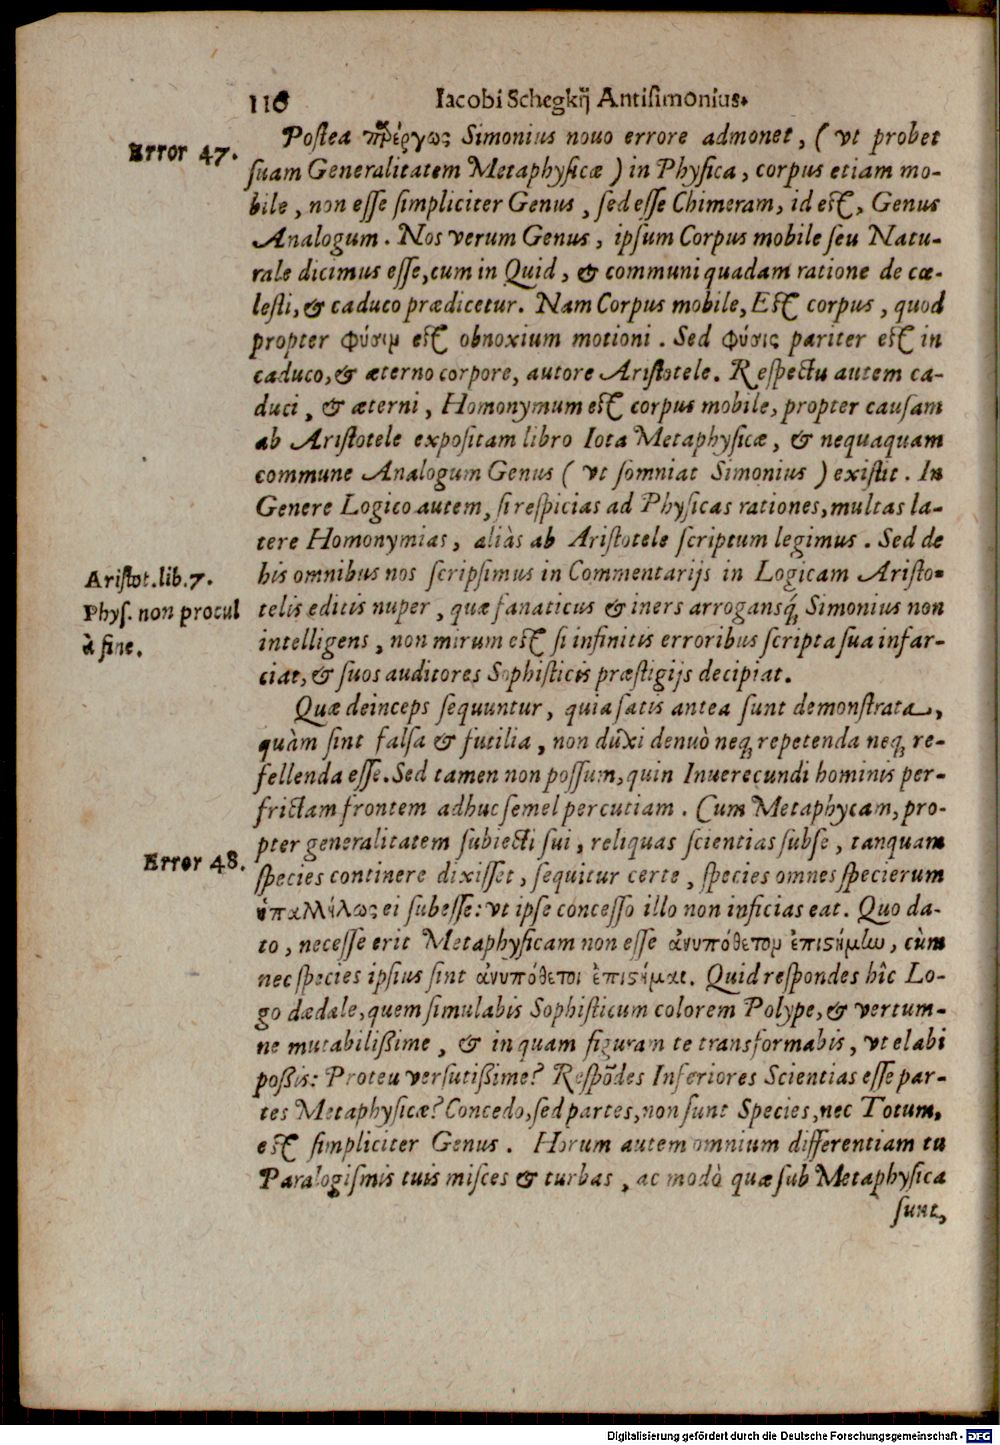 116 Iacobi Schegkij Antisimonius.
Error 47.
Postea παρέργως Simonius nouo errore admonet, ( vt probet
suam Generalitatem Metaphysicæ ) in Physica, corpus etiam mo-
bile, non esse simpliciter Genus, sed esse Chimeram, id est, Genus
Analogum. Nos verum Genus, ipsum Corpus mobile seu Natu-
rale dicimus esse, cum in Quid, & communi quadam ratione de cœ-
lesti, & caduco prædicetur. Nam Corpus mobile, Est corpus, quod
propter φύσιμ est obnoxium motioni. Sed φύσις pariter est in
caduco, & æterno corpore, autore Aristotele. Respectu autem ca-
duci, & æterni, Homonymum est corpus mobile, propter causam
ab Aristotele expositam libro Iota Metaphysicæ, & nequaquam
commune Analogum Genus ( vt somniat Simonius ) existit. In
Genere Logico autem, si respicias ad Physicas rationes, multas la-
tere Homonymias, aliàs ab Aristotele scriptum legimus. Sed de
Aristot. lib. 7.
Phys. non procul
à fine.
his omnibus nos scripsimus in Commentarijs in Logicam Aristo-
telis editis nuper, quæ fanaticus & iners arrogansq́; Simonius non
intelligens, non mirum est si infinitis erroribus scripta sua infar-
ciat, & suos auditores Sophisticis præstigijs decipiat.
Quæ deinceps sequuntur, quia satis antea sunt demonstrata,
quàm sint falsa & futilia, non duxi denuò neq; repetenda neq; re-
fellenda esse. Sed tamen non possum, quin Inuerecundi hominis per-
frictam frontem adhuc semel percutiam. Cum Metaphycam, pro-
pter generalitatem subiecti sui, reliquas scientias sub se, tanquam
Error 48.
species continere dixisset, sequitur certe, species omnes specierum
ὑπαλλήλως ei subesse: vt ipse concesso illo non inficias eat. Quo da-
to, necesse erit Metaphysicam non esse ἀνυπόθετομ ἐπιστήμην, cùm
nec species ipsius sint ἀνυπόθετοι ἐπιστήμαι. Quid respondes hîc Lo-
go dædale, quem simulabis Sophisticum colorem Polype, & vertum-
ne mutabilißime, & in quam figuram te transformabis, vt elabi
poßis: Proteu versutißime? Respōdes Inferiores Scientias esse par-
tes Metaphysicæ? Concedo, sed partes, non sunt Species, nec Totum,
est simpliciter Genus. Horum autem omnium differentiam tu
Paralogismis tuis misces & turbas, ac modò quæ sub Metaphysica
sunt,
Digitalisierung gefördert durch die Deutsche Forschungsgemeinschaft - DFG